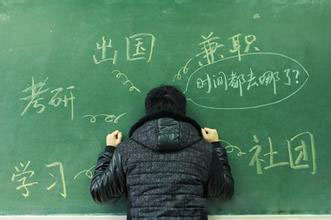 出国
兼职
时间都去哪了?
考研
学习
社团